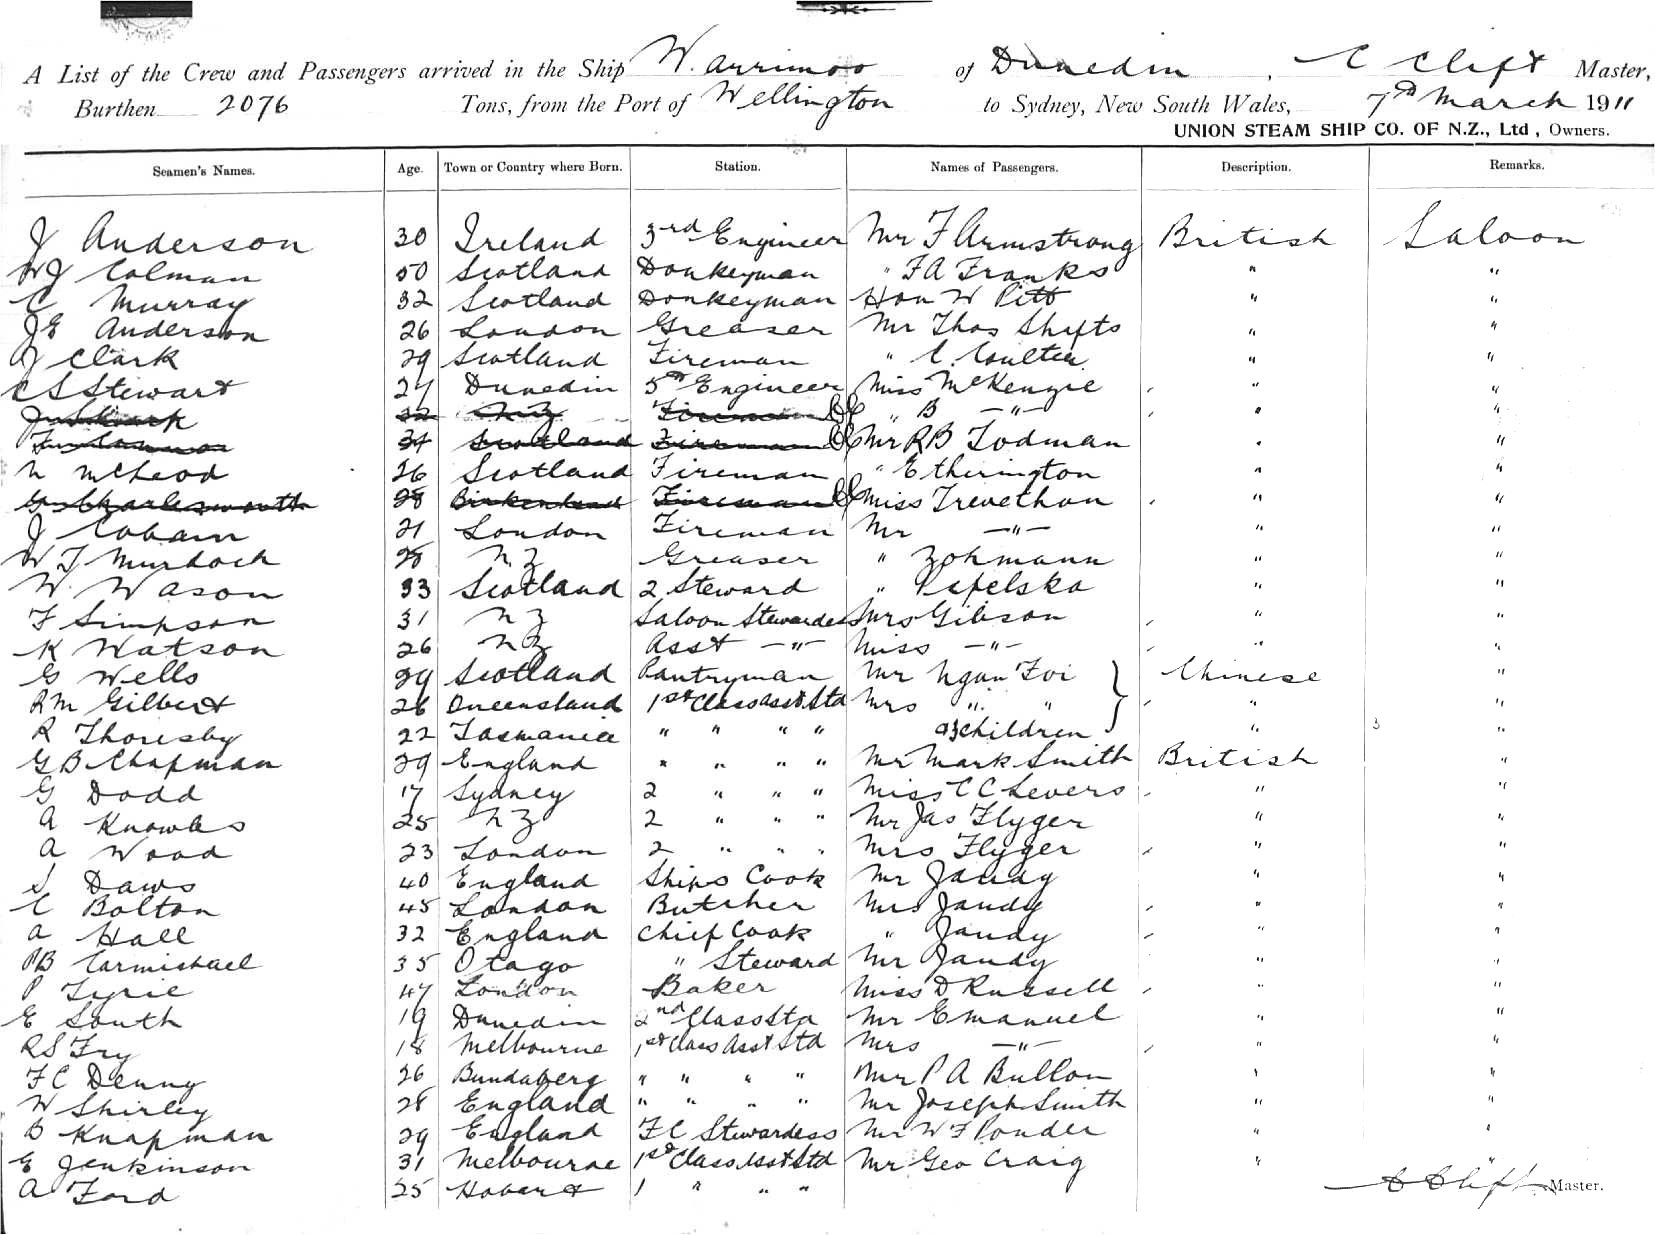 A List of the Crew and Passengers arrived in the Ship Warrimoo of Dunedin, C Clift Master,
Burthen 2076 Tons, from the Port of Wellington to Sydney, New South Wales, 7th March 1911
UNION STEAM SHIP CO. OF N.Z., Ltd, Owners.
Seamen's Names. Age. Town or Country where Born. Station. Names of Passengers. Description. Remarks.
J Anderson 30 Ireland 3rd Engineer Mr F Armstrong British Saloon
WJ Colman 50 Scotland Donkeyman " FA Franks " "
C Murray 32 Scotland Donkeyman Hon W Pitt " "
JE Anderson 26 London Greaser Mr Thos Shifts " "
Clark 29 Scotland Fireman " C. Coulter " "
C S Stewart 27 Dunedin 5th Engineer Miss McKenzie " "
32 NZ Fireman " B —"— " "
Scotland Fireman Mr RB Todman " "
N McLeod 26 Scotland Fireman " Etherington " "
Charlesworth 28 Birkenhead Fireman Miss Trevethan " "
J Cobain 21 London Fireman Mr —"— " "
W T Murdoch 28 NZ Greaser " Zohmann " "
W. Wason 33 Scotland 2 Steward " " "
F Simpson 31 NZ Saloon Stewardess Mrs Gibson " "
K Watson 26 NZ Asst —"— Miss —"— " "
G Wells 29 Scotland Pantryman Mr Ngan Foi Chinese "
RM Gilbert 26 Queensland 1st Class Asst Std Mrs " " " "
R Thoresby 22 Tasmania " " " " 3 children " 3 "
G B Chapman 29 England " " " " Mr Mark Smith British "
G Dodd 17 Sydney 2 " " " Miss C C Levers " "
A Knowles 25 NZ 2 " " " Mr Jas Flyger " "
A Wood 23 London 2 " " " Mrs Flyger " "
Daws 40 England Ships Cook Mr Jandy " "
C Bolton 45 London Butcher Mrs Jandy " "
A Hall 32 England Chief Cook " Jandy " "
PB Carmichael 35 Otago " Steward Mr Jandy " "
P Tyrie 47 London Baker Miss D Russell " "
E South 19 Dunedin 2nd Class Std Mr Emanuel " "
RS Fry 18 Melbourne 1st Class Asst Std Mrs —"— " "
F C Denny 26 Bundaberg " " " " Mr P A Bullon " "
W Shirley 28 England " " " " Mr Joseph Smith " "
B Knapman 29 England F C Stewardess Mr W F Ponder " "
E Jenkinson 31 Melbourne 1st Class Asst Std Mr Geo Craig " "
A Ford 25 Hobart 1 " " " C Clift Master.